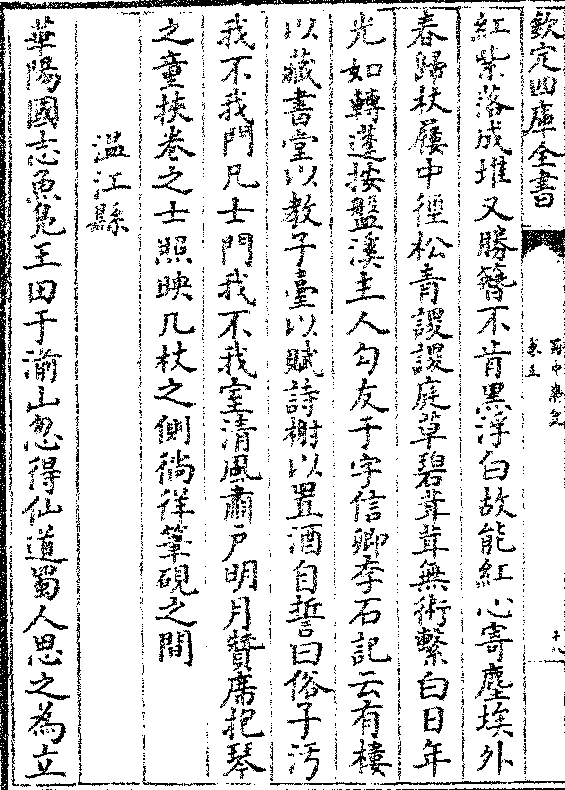 欽定四庫全書
蜀中廣記
卷五
十九
紅紫落成堆又勝簪不肯黑浮白故能紅心寄塵埃外
春歸杖屨中徑松青謖謖庭草碧茸茸無術繫白日年
光如轉蓬按盤溪主人勾友于字信卿李石記云有樓
以藏書堂以教子臺以賦詩榭以置酒自誓曰俗子汚
我不我門凡士門我不我室清風肅戶明月贊席抱琴
之童挾卷之士照映几杖之側徜徉筆硯之間
溫江縣
華陽國志魚鳧王田于湔山忽得仙道蜀人思之為立